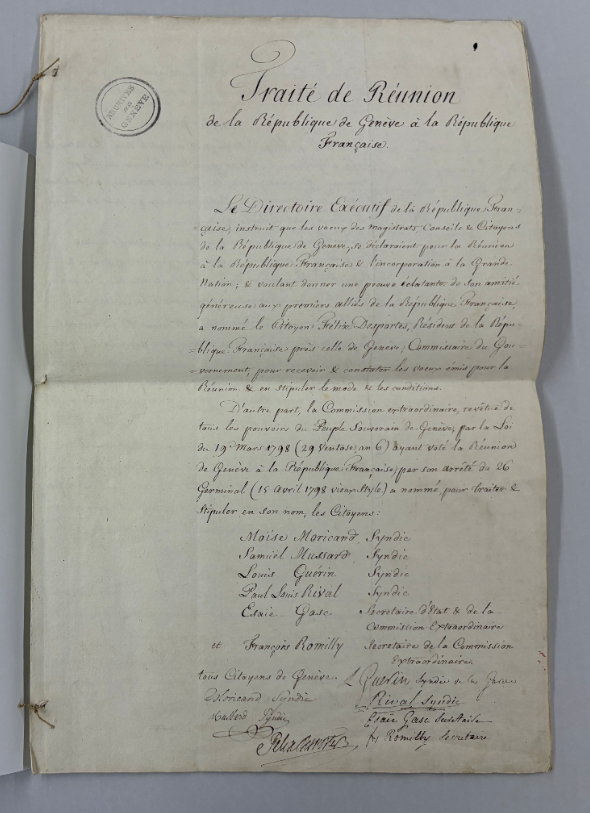 ARCHIVES
DE
GENÈVE
Traité de Réunion
de la République de Genève à la République
Française.
Le Directoire Exécutif de la République Fran=
=çaise, instruit que les voeux des Magistrats, Conseils & Citoyens
de la République de Genève, se déclaraient pour la Réunion
à la République Française, & l'incorporation à la Grande
Nation; & voulant donner une preuve éclatante de son amitié
généreuse aux premiers alliés de la République Française
a nommé le Citoyen Félix Desportes, Résident de la Répu=
=blique Française près celle de Genève, Commissaire du Gou=
=vernement, pour recevoir & constater les voeux émis pour la
Réunion & en stipuler le mode & les conditions.
D'autre part, la Commission extraordinaire, revêtue de
tous les pouvoirs du Peuple Souverain de Genève, par la Loi
du 19 Mars 1798 (29 Ventose, an 6) ayant voté la Réunion
de Genève à la République Française, par son arrêté du 26
Germinal (15 avril 1798 vieux Style) a nommé, pour traiter &
Stipuler en son nom, les Citoyens:
Moïse Moricand, Syndic
Samuel Mussard, Syndic
Louis Guérin Syndic
Paul Louis Rival Syndic
Esaïe Gasc Secretaire d'Etat & de la
Commission Extraordinaire
et François Romilly Secretaire de la Commission
Extraordinaire.
tous Citoyens de Genève. L Guerin Syndic de la Garde
Moricand Syndic Rival Syndic
Mussard Syndic Esaïe Gasc Secretaire
Félix Desportes fs Romilly Secretaire